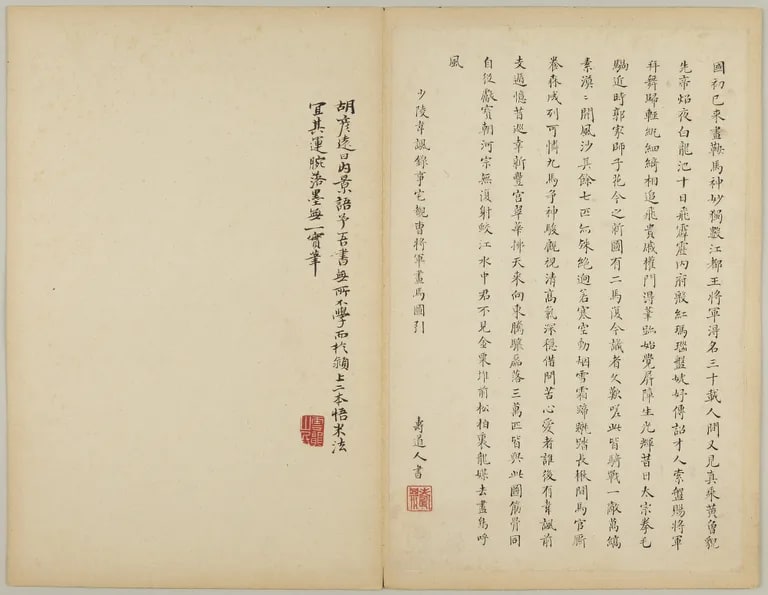 國初已來畫鞍馬神妙獨數江都王將軍淂名三十載人間又見真乘黃曾貌
先帝焰夜白龍池十日飛霹靂內府殷紅瑪瑙盤婕妤傳詔才人索盤賜將軍
拜舞歸輕紈細綺相追飛貴戚權門淂筆跡始覺屏障生光輝昔日太宗拳毛
騧近時郭家師子花今之新圖有二馬復令識者久歎嗟此皆騎戰一敵萬縞
素漠〻開風沙其餘七匹亦殊絕迥若寒空動烟雪霜蹄蹴踏長楸間馬官厮
養森成列可憐九馬爭神駿顧視清高氣深穩借問苦心愛者誰後有韋諷前
支遁憶昔巡幸新豐宮翠華拂天來向東騰驤磊落三萬匹皆與此圖筋骨同
自從獻寶朝河宗無復射蛟江水中君不見金粟堆前松柏裏龍媒去盡鳥呼
風
少陵韋諷錄事宅觀曹將軍畫馬圖引
壽道人書
胡彥遠曰內景語予吾書無所不學而於潁上二本悟米法
宜其運腕落墨無一實筆